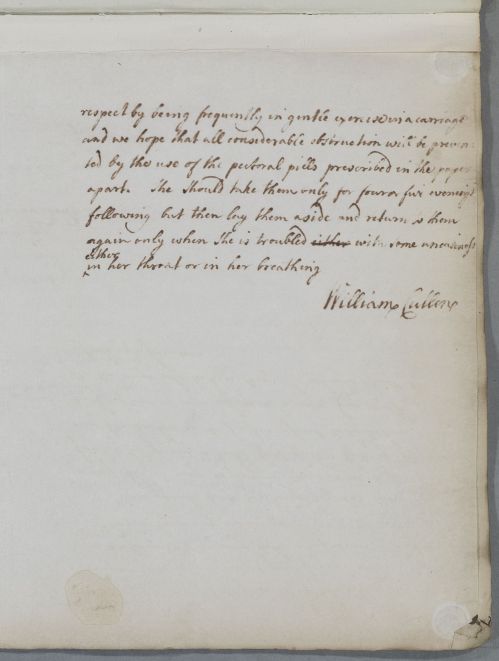 respect by being frequently in gentle exercise in a carriage
and we hope that all considerable obstruction will be preven
ted by the use of the pectoral pills prescribed in the paper
apart. She should take them only for four or five evenings
following but then lay them aside and return to them
again only when she is troubled either with some uneasiness
either
in her throat or in her breathing
William Cullen